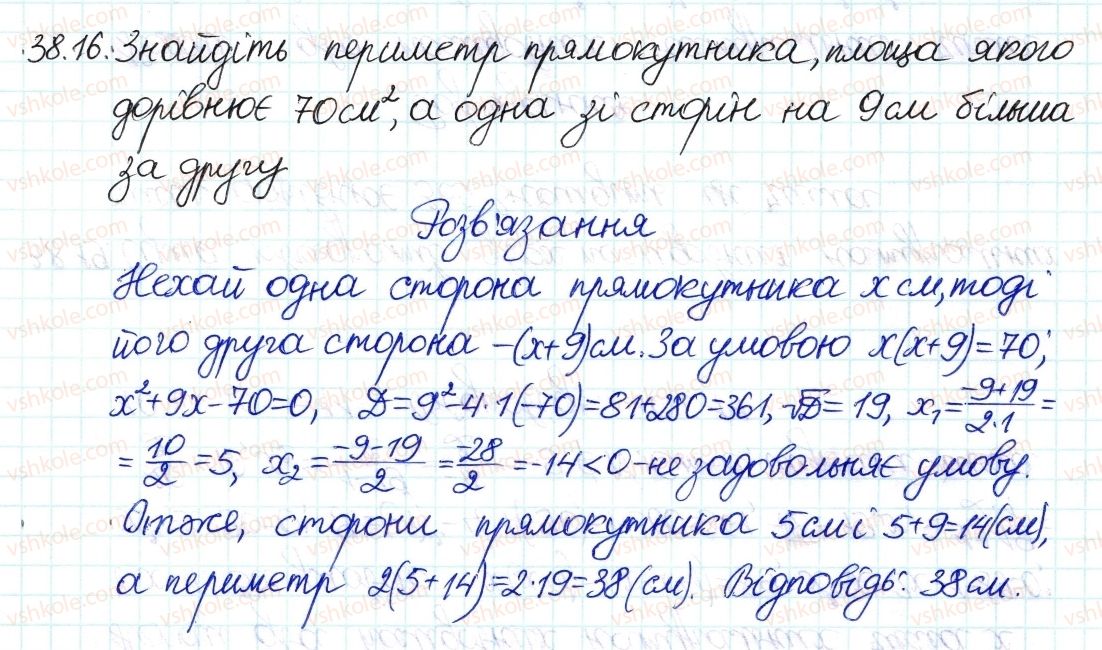 38.16. Знайдіть периметр прямокутника, площа якого
дорівнює 70 см², а одна зі сторін на 9 см більша
за другу
Розв'язання
Нехай одна сторона прямокутника x см, тоді
його друга сторона – (x+9) см. За умовою x(x+9)=70;
x²+9x-70=0, D=9²-4·1(-70)=81+280=361, √D=19, x₁=(-9+19)/(2·1)=
=10/2=5, x₂=(-9-19)/2=-28/2=-14<0 - не задовольняє умову.
Отже, сторони прямокутника 5 см і 5+9=14(см),
а периметр 2(5+14)=2·19=38(см). Відповідь: 38 см.